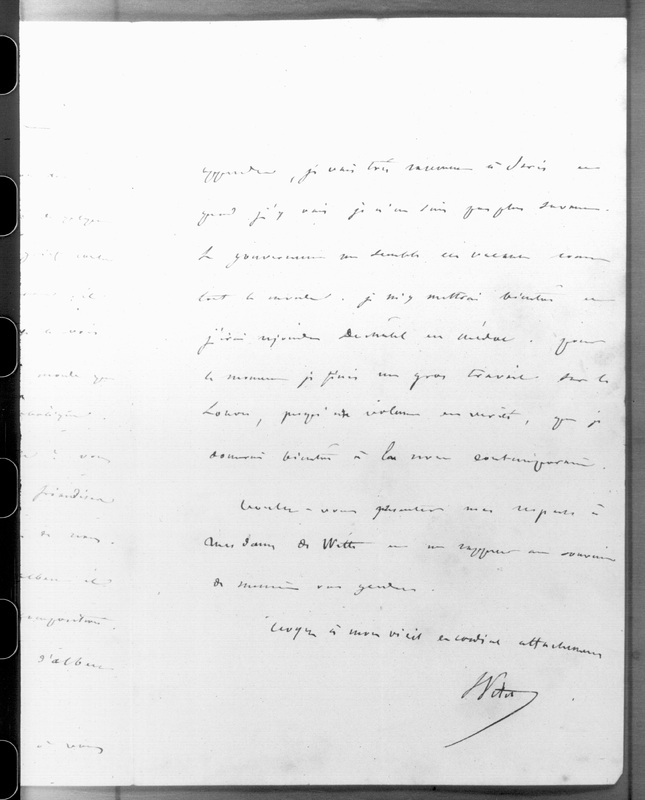 apprendre, je vais très rarement à Paris et
quand j'y vais je n'en suis pas plus savant.
Le gouvernement me semble en vacances comme
tout le monde. je m'y mettrai bientôt et
j'irai rejoindre Duchâtel en Médoc. pour
le moment je finis un gros travail sur le
Louvre, presqu'un volume en vérité, que je
donnerai bientôt à la revue contemporaine.
Veuillez-vous présenter mes respects à
Mesdames de Witt et me rappeler au souvenir
de messieurs vos gendres.
Croyez à mon vieil et cordial attachement
Vitet
à vois
monde que
à vous
et
composition.
d'album
à vous